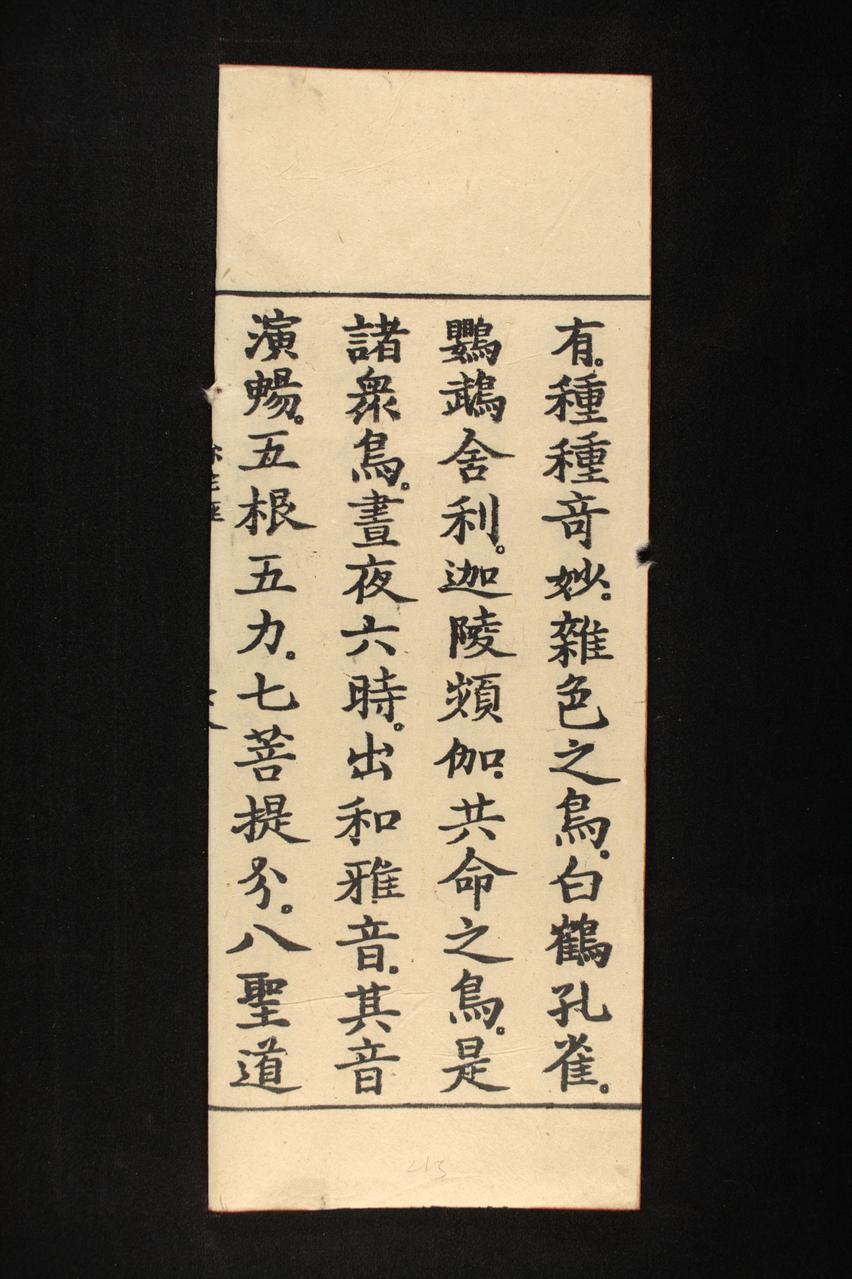 有。種種奇妙。雜色之鳥。白鶴孔雀。
鸚鵡舍利。迦陵頻伽。共命之鳥。是
諸衆鳥。晝夜六時。出和雅音。其音
演暢。五根五力。七菩提分。八聖道
213